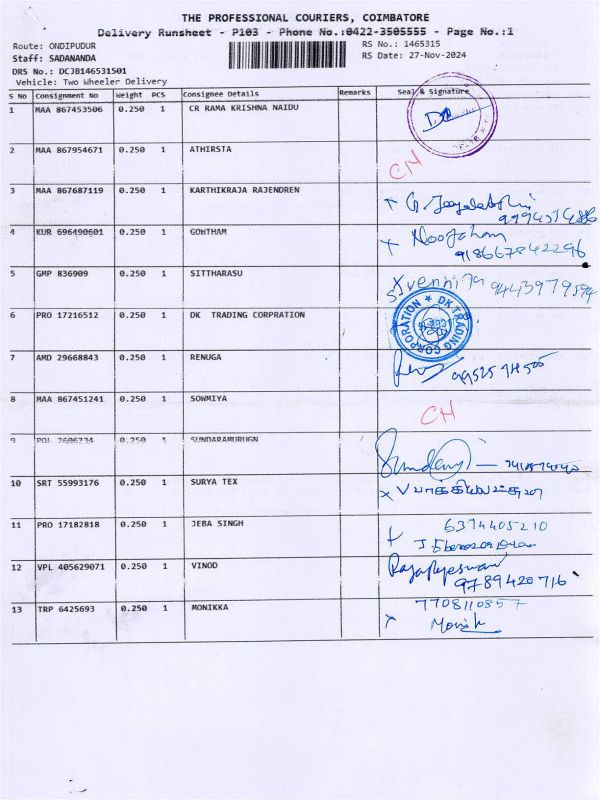 THE PROFESSIONAL COURIERS, COIMBATORE
Delivery Runsheet - P103 - Phone No.:0422-3505555 - Page No.:1
Route: ONDIPUDUR RS No.: 1465315
Staff: SADANANDA RS Date: 27-Nov-2024
DRS No.: DCJB146531501
Vehicle: Two Wheeler Delivery
S No Consignment No Weight PCS Consignee Details Remarks Seal & Signature
1 MAA 867453506 0.250 1 CR RAMA KRISHNA NAIDU
2 MAA 867954671 0.250 1 ATHIRSTA CH
3 MAA 867687119 0.250 1 KARTHIKRAJA RAJENDREN
4 KUR 696490601 0.250 1 GOWTHAM
918667842296
5 GMP 836909 0.250 1 SITTHARASU 9443979594
6 PRO 17216512 0.250 1 DK TRADING CORPRATION DK TRADING CORPORATION
7 AMD 29668843 0.250 1 RENUGA
8 MAA 867451241 0.250 1 SOWMIYA CH
9 POL 2606234 0.250 1 SUNDARAMURUGN
10 SRT 55993176 0.250 1 SURYA TEX
11 PRO 17182818 0.250 1 JEBA SINGH 6374405210
12 VPL 405629071 0.250 1 VINOD Rajarajeswari
9789420716
13 TRP 6425693 0.250 1 MONIKKA 7708110857